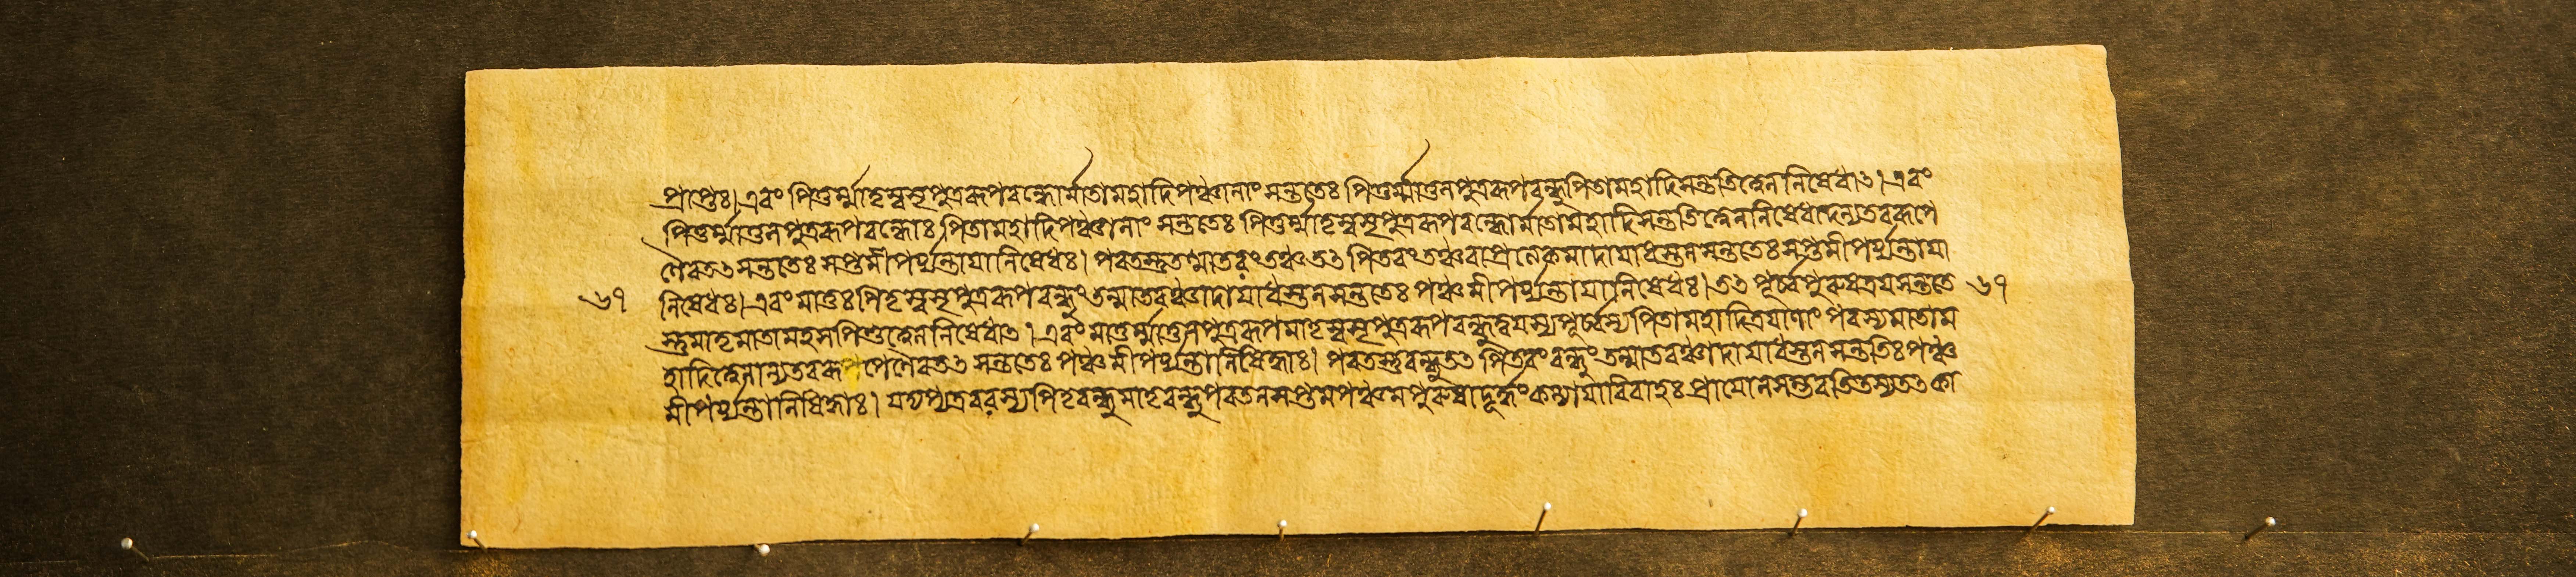 প্রাপ্তঃ। এবং পিতুর্ম্মাতৃস্বসৃপুত্ররূপবন্ধোর্মাতামহাদিপঞ্চানাং সন্ততেঃ পিতুর্ম্মাতুলপুত্ররূপবন্ধুপিতামহাদিসন্ততিত্বেননিষেধাৎ। এবং
পিতুর্ম্মাতুলপুত্ররূপবন্ধোঃ পিতামহাদিপঞ্চানাং সন্ততেঃ পিতুর্ম্মাতৃস্বসৃপুত্ররূপবন্ধোর্মাতামহাদিসন্ততিত্বেননিষেধাদন্যতররূপে
ণৈবতৎসন্ততেঃ সপ্তমীপর্য্যন্তাযানিষেধঃ। পরতস্তু তৎপিতরং বাপ্রত্যেকমাদাযাধস্তনসন্ততেঃ সপ্তমীপর্য্যন্তাযা
নিষেধঃ। এবং মাতুঃপিতৃস্বসৃপুত্ররূপবন্ধুং তন্মাতরঞ্চাদাযাধস্তনসন্ততেঃ পঞ্চমীপর্য্যন্তাযানিষেধঃ। তৎ পূর্ব্বপুরুষত্রযসন্ততে
৬৭ ৬৭
স্তুমাতৃমাতামহসপিণ্ডত্বেননিষেধাৎ। এবং মাতুর্ম্মাতুলপুত্ররূপমাতৃস্বসৃপুত্ররূপবন্ধুদ্বযস্যপূর্ব্বস্যপিতামহাদিত্রযাণাং পরস্যমাতাম
হাদিত্বেনান্যতররূপেণৈবতৎ সন্ততেঃ পঞ্চমীপর্য্যন্তানিষিদ্ধাঃ। পরতস্তুবন্ধুতৎ পিতরং বন্ধুং তন্মাতরঞ্চাদাযাধস্তনসন্ততিঃ পঞ্চ
মীপর্য্যন্তানিষিদ্ধাঃ। যদ্যপ্যত্রবরস্যপিতৃবন্ধুমাতৃবন্ধুপরতনসপ্তমপঞ্চমপুরুষাদূর্দ্ধং কন্যাযাবিবাহঃ প্রাযোনসম্ভবতিতস্যতৎকা